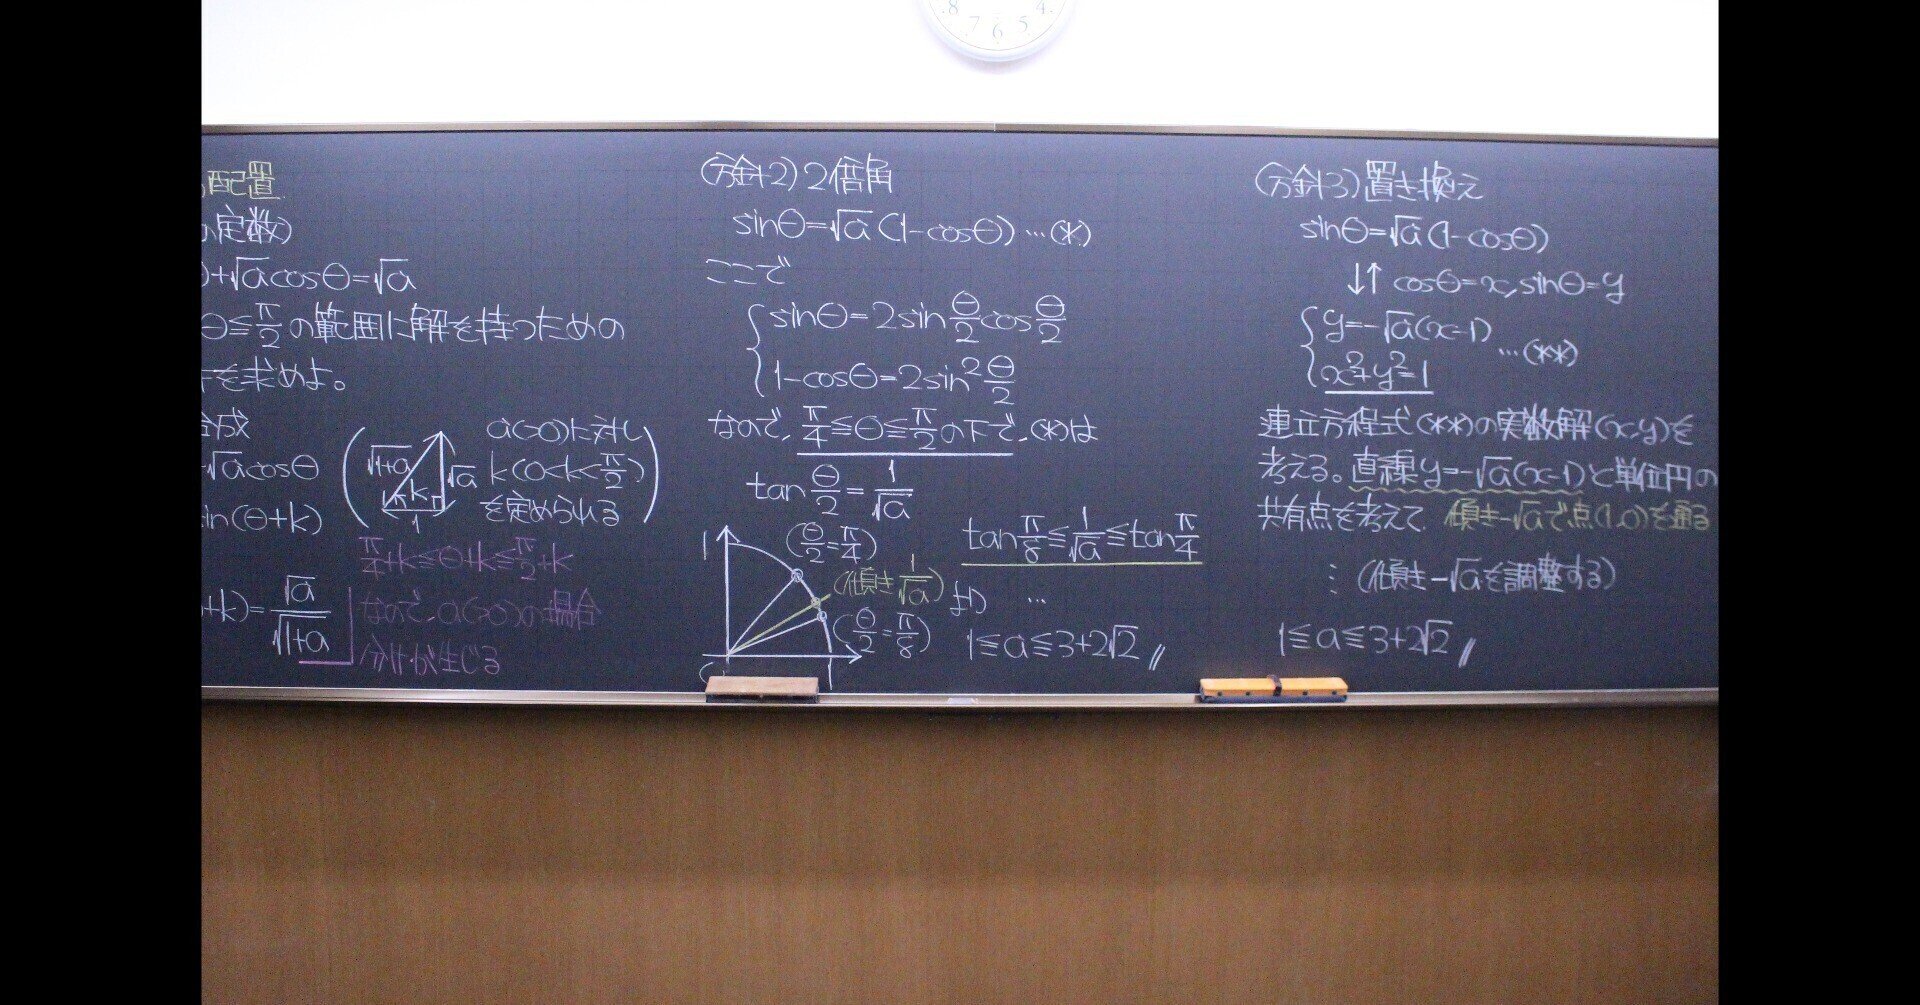 8 7 6 5 4
配置
定数)
)+√a cosθ=√a
θ≦π/2の範囲に解を持つための
を求めよ。
合成
√a cosθ
in(θ+k)
+k)=√a/√(1+a)
√(1+a) √a k 1
a(>0)に対し
k(0<k<π/2)
を定められる
π/4+k≦θ+k≦π/2+k
なので、a(>0)の場合
分けが生じる
(方針2)2倍角
sinθ=√a(1-cosθ)…(*)
ここで
sinθ=2sinθ/2cosθ/2
1-cosθ=2sin²θ/2
なので、π/4≦θ≦π/2の下で、(*)は
tanθ/2=1/√a
1
(θ/2=π/4)
(傾き1/√a)
(θ/2=π/8)
1
tanπ/8≦1/√a≦tanπ/4
より …
1≦a≦3+2√2〃
(方針3)置き換え
sinθ=√a(1-cosθ)
↓↑ cosθ=x, sinθ=y
y=-√a(x-1)
x²+y²=1
…(**)
連立方程式(**)の実数解(x,y)を
考える。直線y=-√a(x-1)と単位円の
共有点を考えて 傾き-√aで点(1,0)を通る
⋮ (傾き-√aを調整する)
1≦a≦3+2√2〃